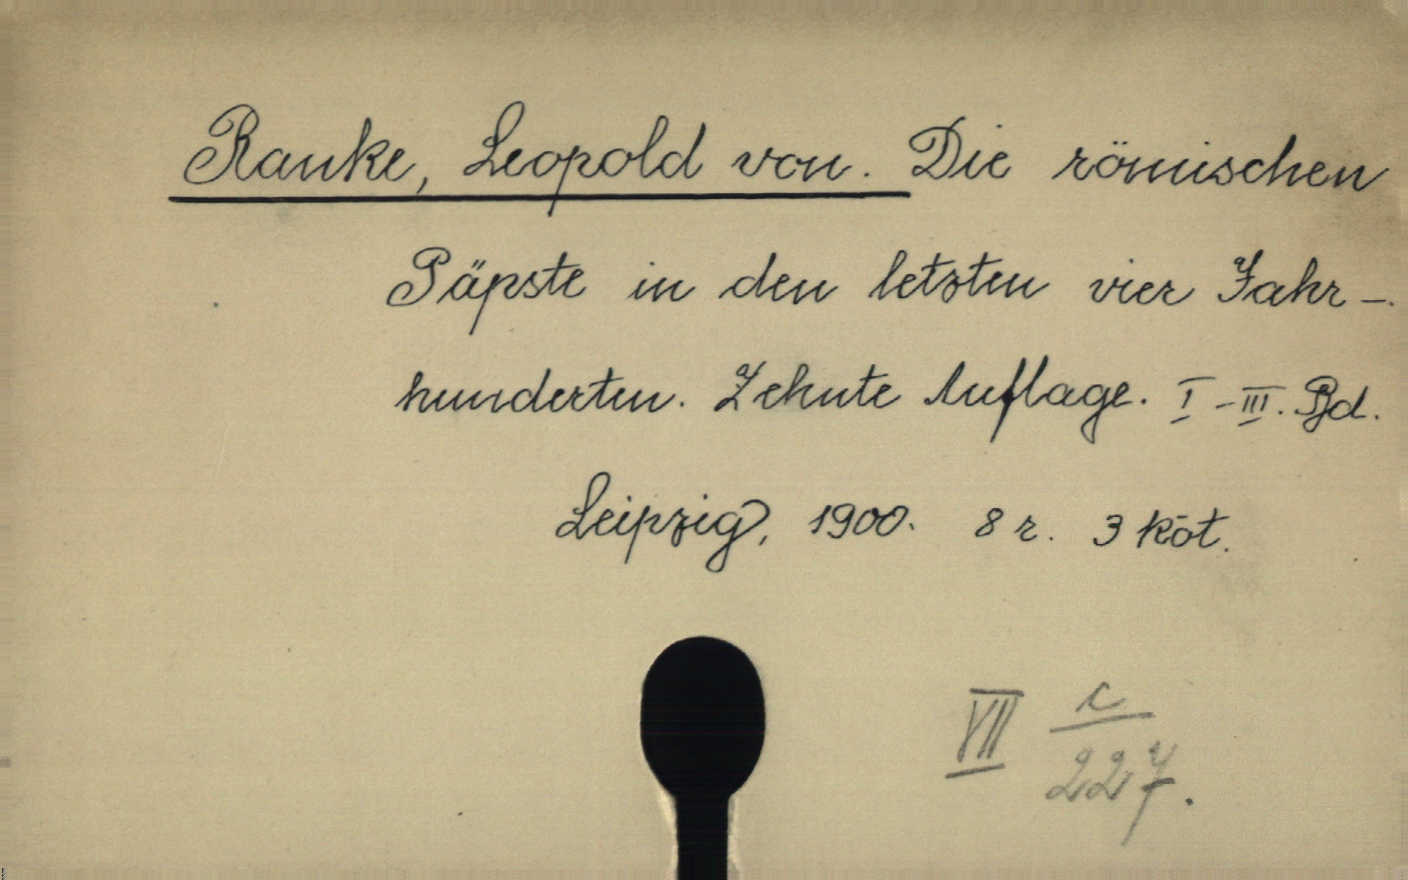 Ranke, Leopold von. Die römischen
Päpste in den letzten vier Jahr-
hunderten. Zehnte Auflage. I-III. Bd.
Leipzig, 1900. 8 r. 3 köt.
VII c/227.